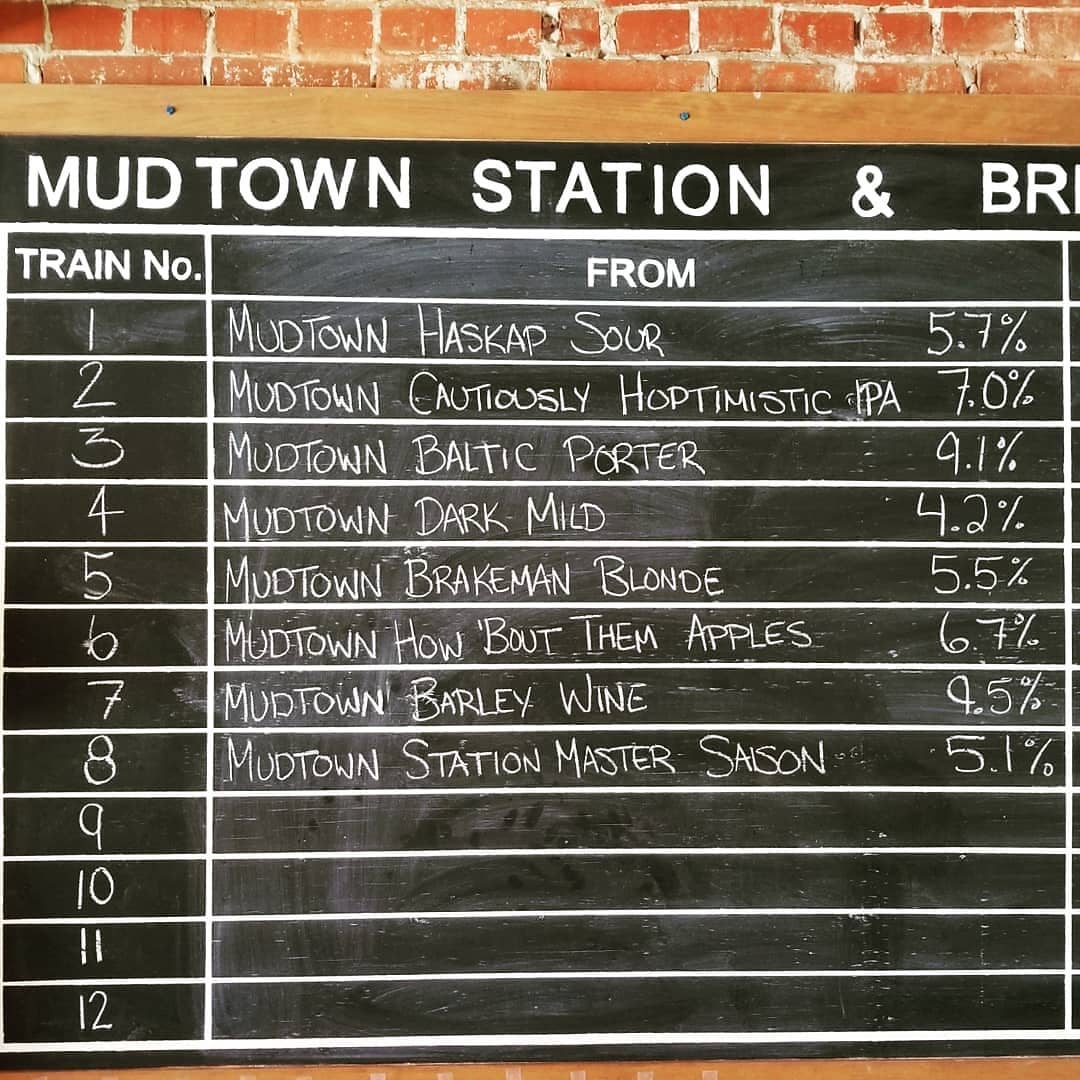 MUDTOWN STATION & BR
TRAIN No. FROM
1 MUDTOWN HASKAP SOUR 5.7%
2 MUDTOWN CAUTIOUSLY HOPTIMISTIC IPA 7.0%
3 MUDTOWN BALTIC PORTER 9.1%
4 MUDTOWN DARK MILD 4.2%
5 MUDTOWN BRAKEMAN BLONDE 5.5%
6 MUDTOWN HOW 'BOUT THEM APPLES 6.7%
7 MUDTOWN BARLEY WINE 9.5%
8 MUDTOWN STATION MASTER SAISON 5.1%
9
10
11
12